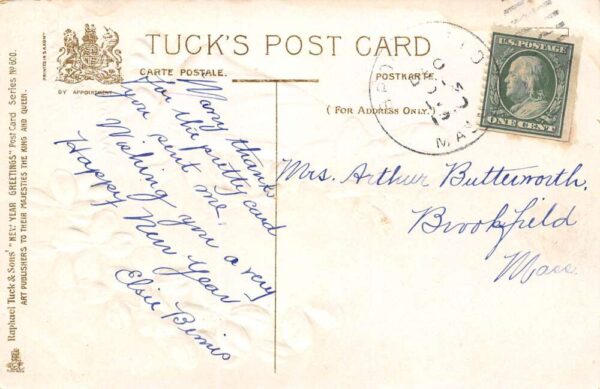 TUCK'S POST CARD
CARTE POSTALE. POSTKARTE.
(FOR ADDRESS ONLY.)
PRINTED IN SAXONY
BY APPOINTMENT
Raphael Tuck & Sons' "NEW YEAR GREETINGS" Post Card Series Nº 600.
ART PUBLISHERS TO THEIR MAJESTIES THE KING AND QUEEN.
Many thanks
for the pretty card
you sent me.
Wishing you a very
Happy New Year
Elsie Bemis
DEC
MA
U.S. POSTAGE
ONE CENT
Mrs. Arthur Butterworth,
Brookfield
Mass